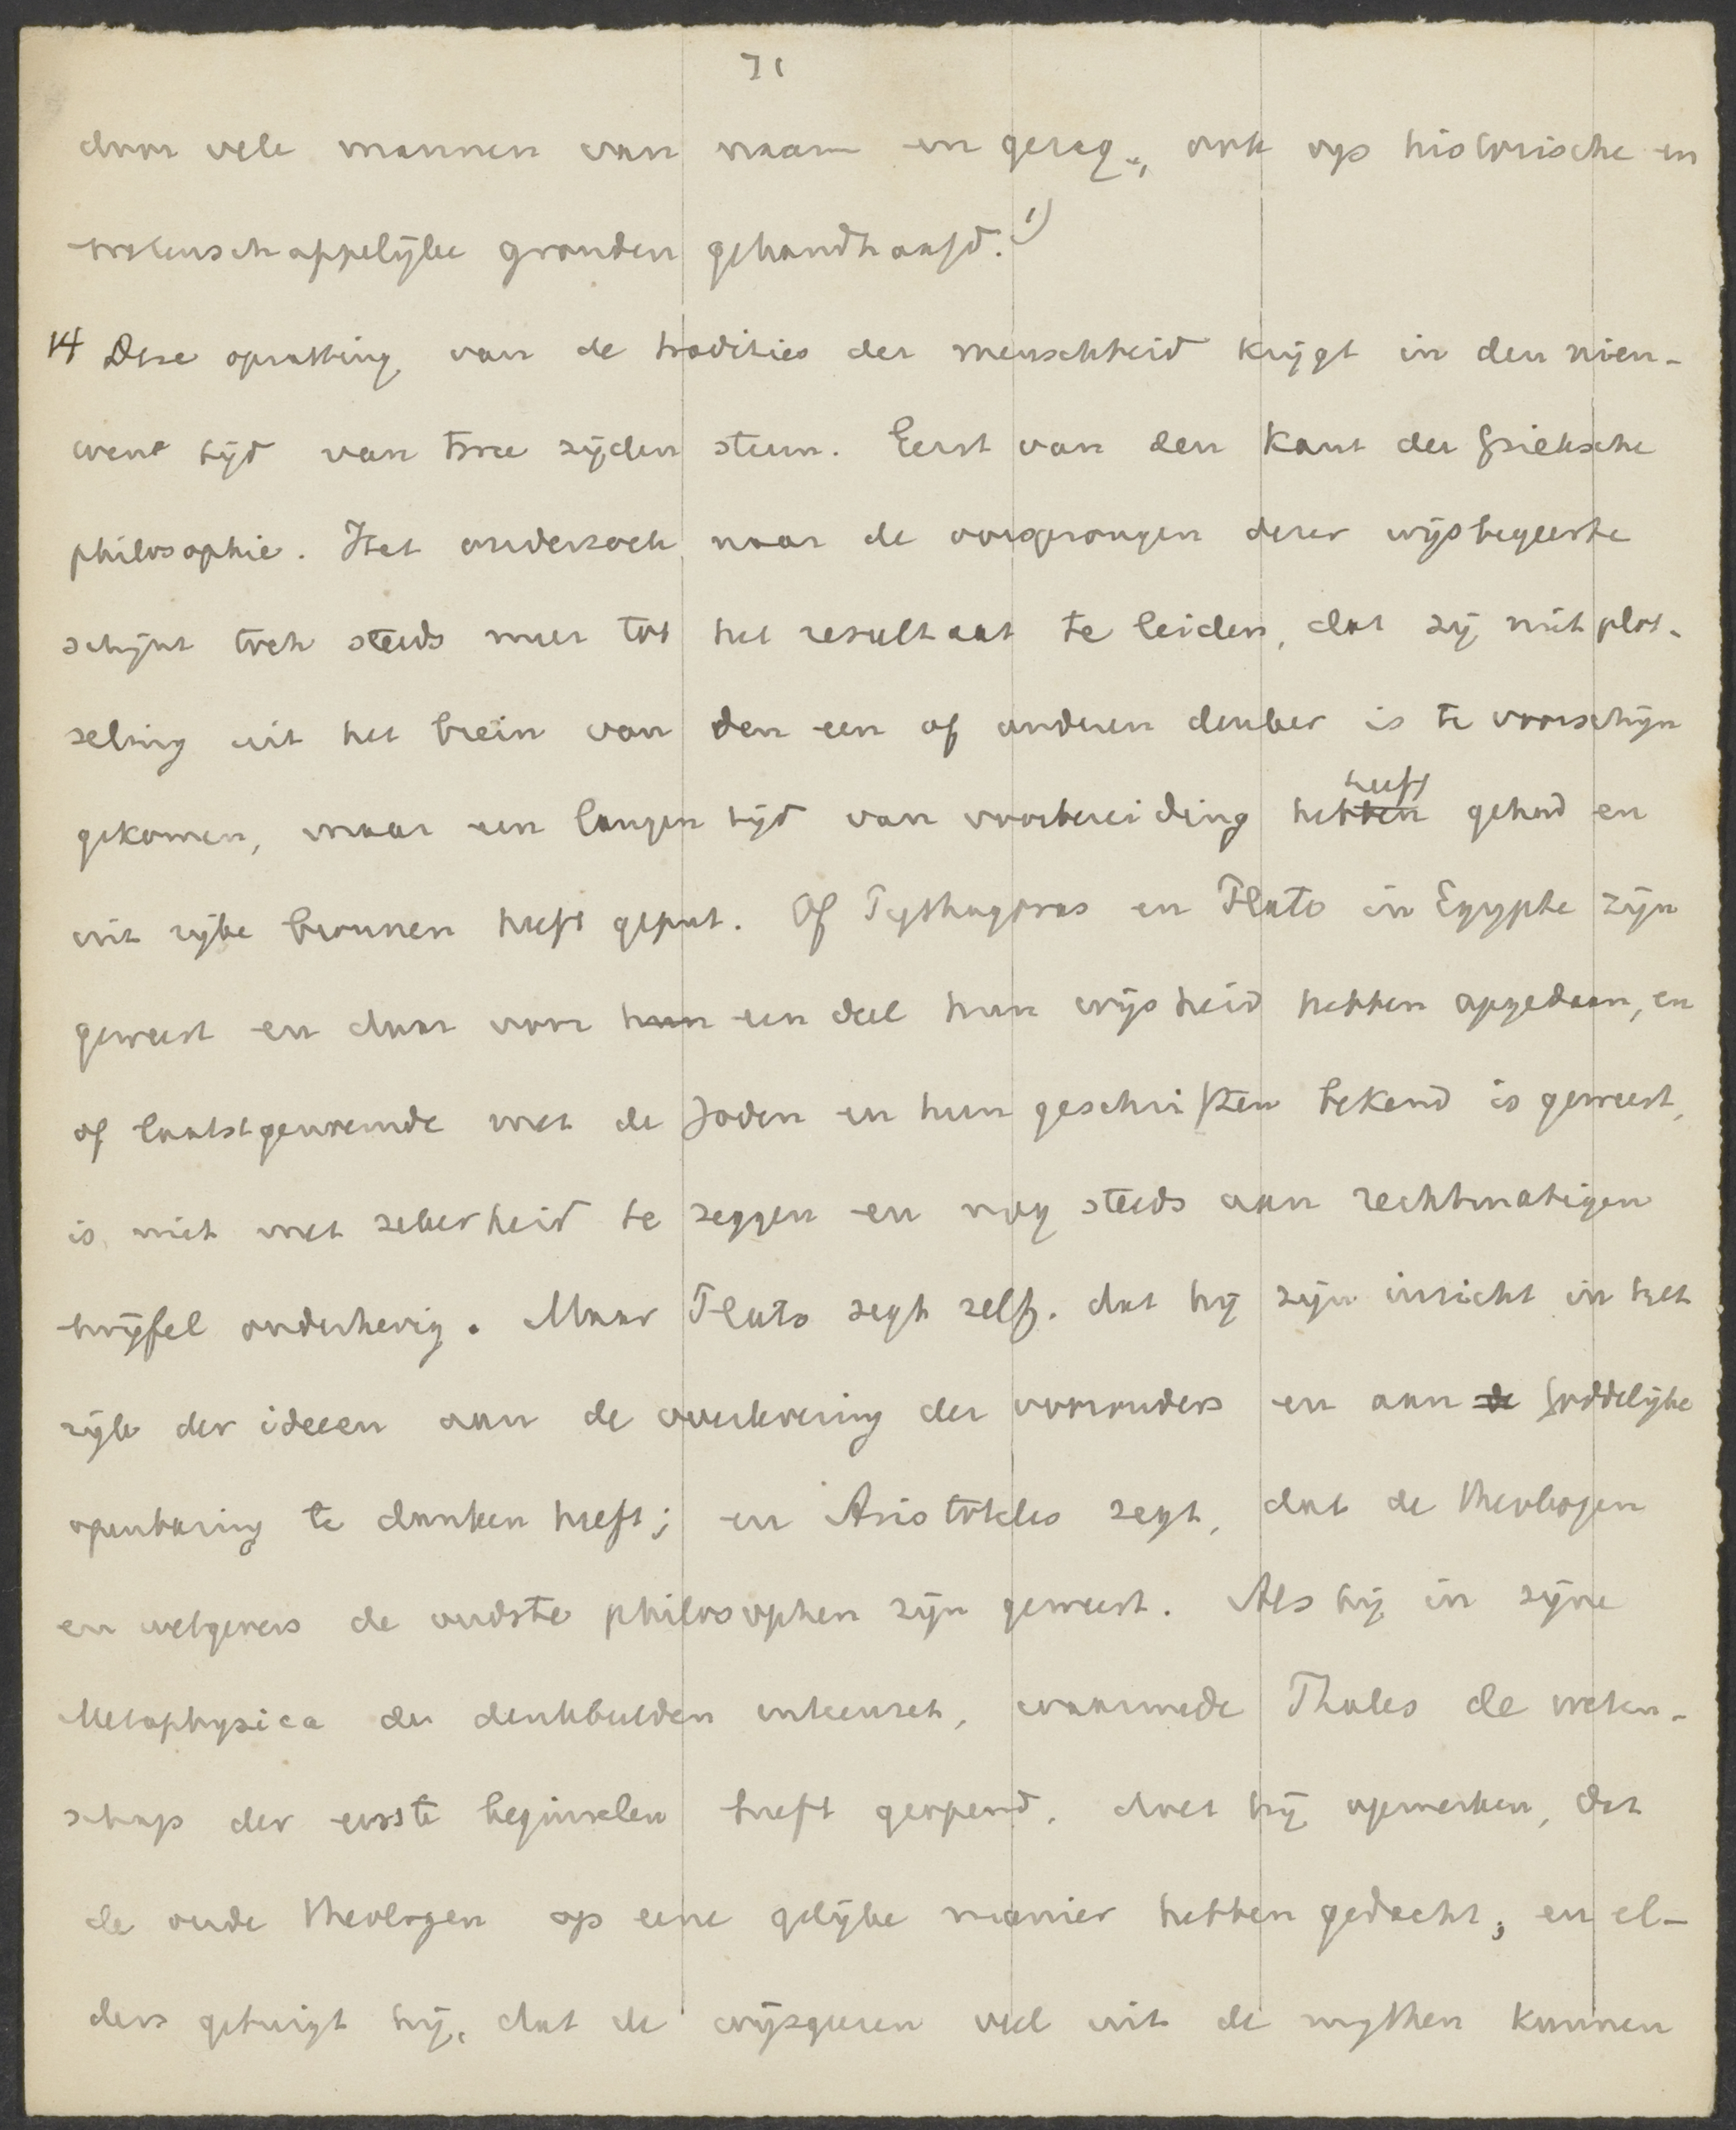 71
door vele mannen van naam en gezag, ook op historische en
wetenschappelijke gronden gehandhaafd. 1)
14 Deze opvatting van de tradities der menschheid krijgt in den nieu-
wen tijd van twee zijden steun. Eerst van den kant der Grieksche
philosophie. Het onderzoek naar de oorsprongen dezer wijsbegeerte
schijnt toch steeds meer tot het resultaat te leiden, dat zij niet plot-
seling uit het brein van den een of anderen denker is te voorschijn
heeft
gekomen, maar een langen tijd van voorbereiding hebben gehad en
uit rijke bronnen heeft geput. Of Pythagoras en Plato in Egypte zijn
geweest en daar voor hun een deel hun wijsheid hebben opgedaan, en
of laatstgenoemde met de Joden en hun geschriften bekend is geweest,
is niet met zekerheid te zeggen en nog steeds aan rechtmatigen
twijfel onderhevig. Maar Plato zegt zelf, dat hij zijn inzicht in het
rijk der ideeen aan de overlevering der voorouders en aan de Goddelijke
openbaring te danken heeft; en Aristoteles zegt, dat de theologen
en wetgevers de oudste philosophen zijn geweest. Als hij in zijne
Metaphysica de denkbeelden uiteenzet, waarmede Thales de weten-
schap der eerste beginselen heeft geopend, doet hij opmerken, dat
de oude theologen op eene gelijke manier hebben gedacht; en el-
ders getuigt hij, dat de wijsgeeren veel uit de mythen kunnen